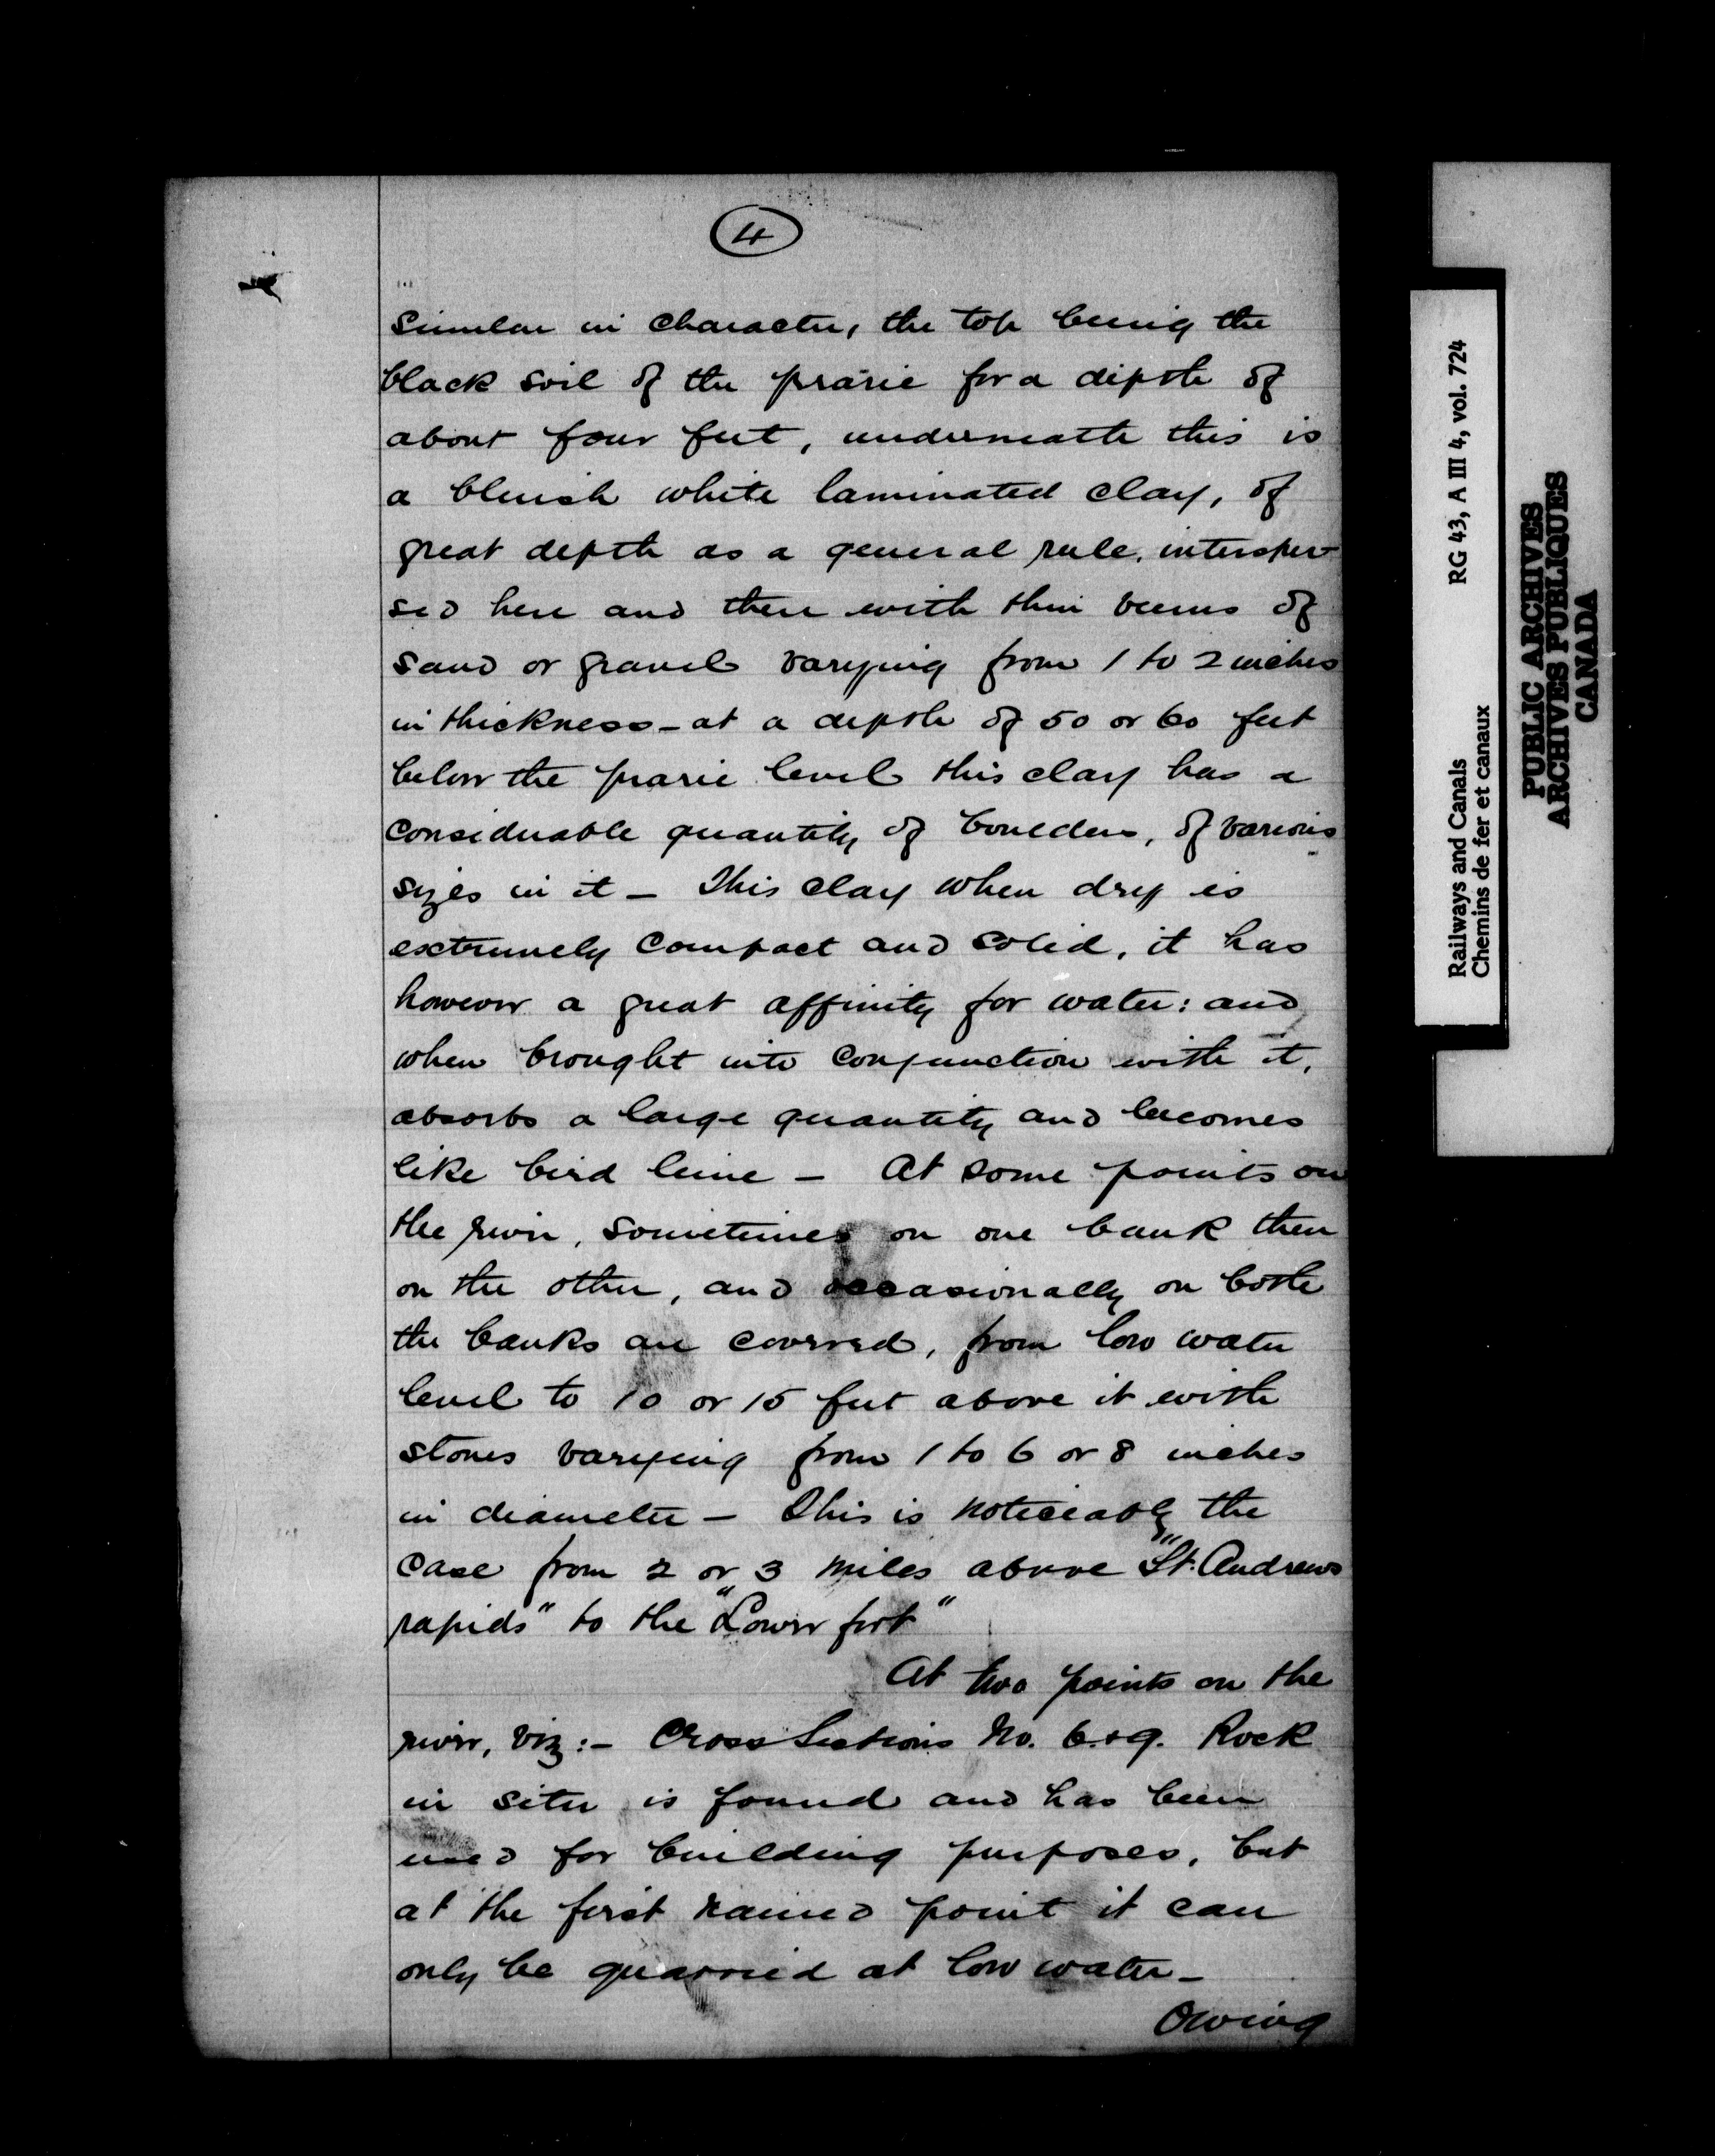 4
similar in character, the top being the
black soil of the prarie for a depth of
about four feet, underneath this is
a bluish white laminated clay, of
great depth as a general rule, intersper-
sed here and there with thin veins of
sand or gravel varying from 1 to 2 inches
in thickness - at a depth of 50 or 60 feet
below the prarie level this clay has a
considerable quantity of boulders, of various
sizes in it - This clay when dry is
extremely compact and solid, it has
however a great affinity for water: and
when brought into conjunction with it,
absorbs a large quantity and becomes
like bird lime - At some points on
the river, sometimes on one bank then
on the other, and occasionally on both
the banks are covered, from low water
level to 10 or 15 feet above it with
stones varying from 1 to 6 or 8 inches
in diameter - This is noticeably the
case from 2 or 3 miles above "St. Andrews
rapids" to the "Lower fort"
At two points on the
river, viz:- Cross Sections No. 6 & 9. Rock
in situ is found and has been
used for building purposes, but
at the first named point it can
only be quarried at low water -
Owing
Railways and Canals RG 43, A III 4, vol. 724
Chemins de fer et canaux
PUBLIC ARCHIVES
ARCHIVES PUBLIQUES
CANADA